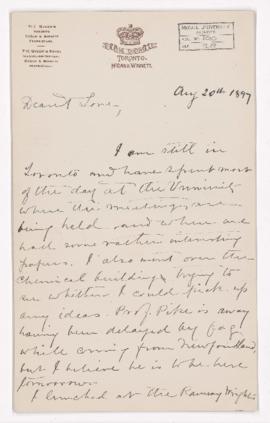 TORONTO.
McGaw & Winnett.
McGILL UNIVERSITY
ARCHIVES
Aug 20th 1897
Dearest Love,
I am still in
Toronto and have spent most
of the day at the University
where the meetings are
being held and where we
had some rather interesting
papers. I also went over the
chemical building trying to
see whether I could pick up
any ideas. Prof. Pike is away
having been delayed by fog
while coming from Newfoundland,
but I believe he is to be here
tomorrow.
I lunched at the Ramsay Wrights